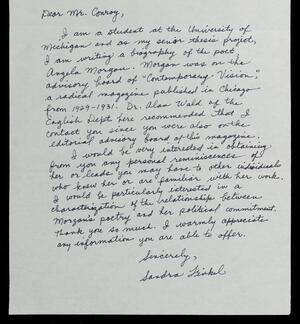 Dear Mr. Conroy,
I am a student at the University of
Michigan and as my senior thesis project,
I am writing a biography of the poet,
Angela Morgan. Morgan was on the
advisory board of "Contemporary Vision"
a radical magazine published in Chicago
from 1929-1931. Dr. Alan Wald of the
English Dept here recommended that I
contact you since you were also on the
editorial advisory board of this magazine.
I would be very interested in obtaining
from you any personal reminiscences of
her or leads you may have to other individuals
who knew her or are familiar with her work.
I would be particularly interested in a
characterization of the relationship between
Morgan's poetry and her political commitment.
Thank you so much. I warmly appreciate
any information you are able to offer.
Sincerely,
Sandra Finkel